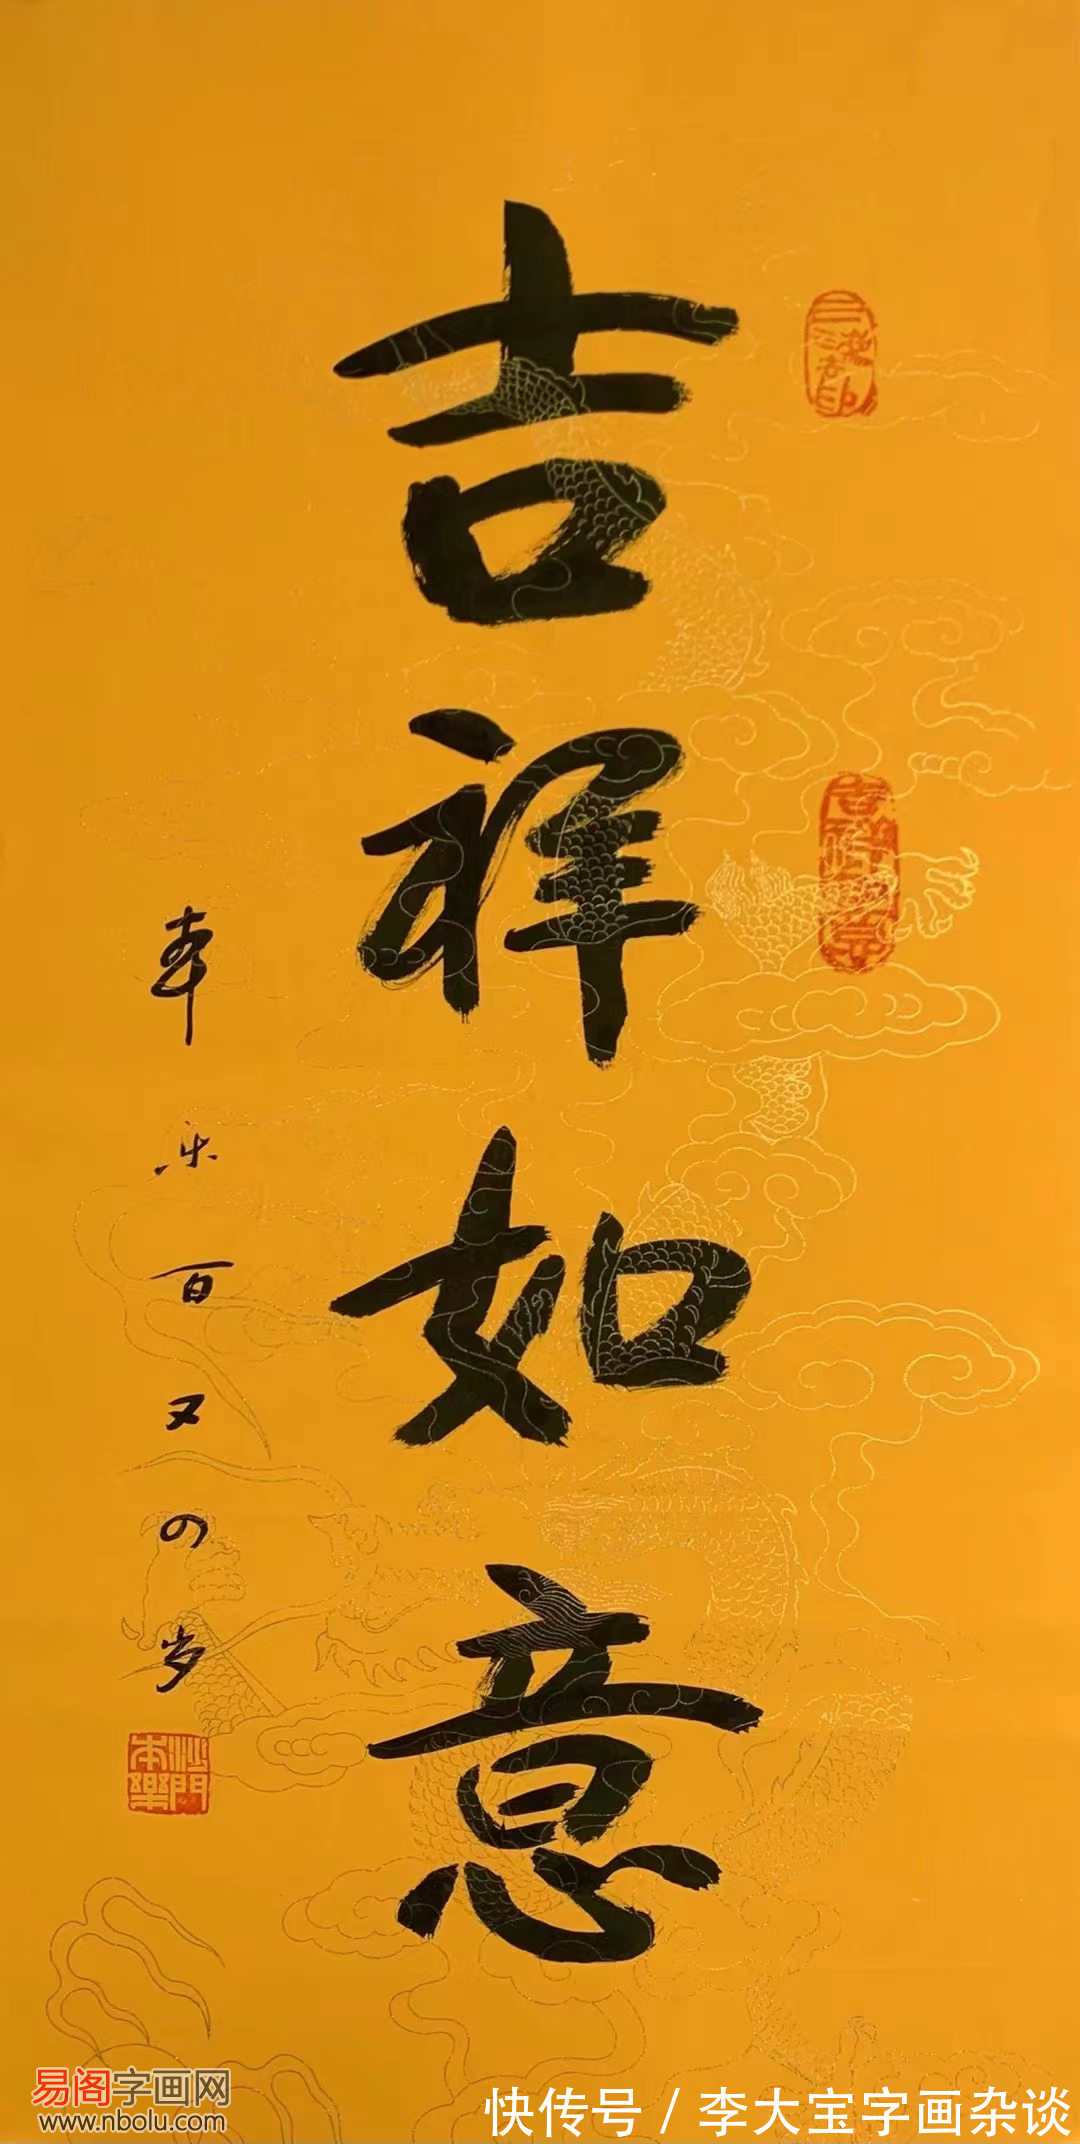 吉祥如意
本乐百又四岁
沙門本樂
易阁字画网
www.nbolu.com
快传号 / 李大宝字画杂谈